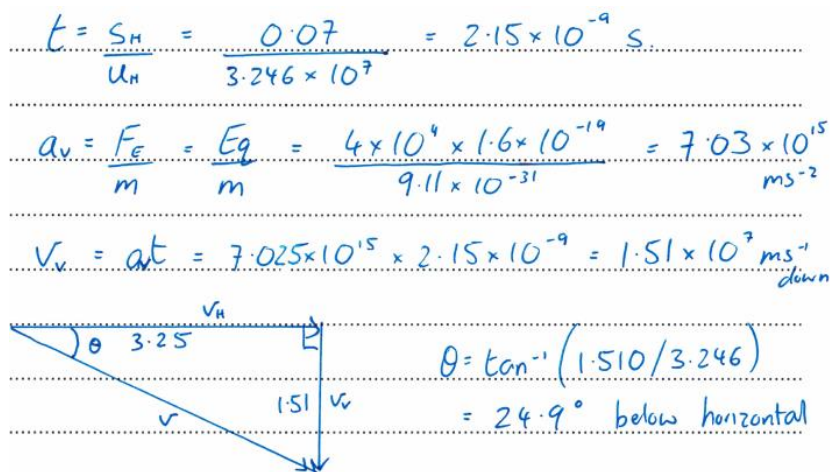 t = S_H / u_H = 0.07 / 3.246 × 10^7 = 2.15 × 10^-9 s.
a_v = F_E / m = Eq / m = 4 × 10^4 × 1.6 × 10^-19 / 9.11 × 10^-31 = 7.03 × 10^15 ms^-2
V_v = a_v t = 7.025 × 10^15 × 2.15 × 10^-9 = 1.51 × 10^7 ms^-1 down
V_H
θ 3.25
θ = tan^-1 (1.510 / 3.246)
1.51 V_v
V
= 24.9° below horizontal